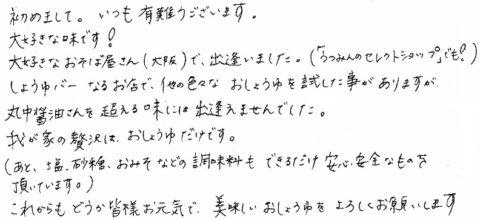 初めまして。いつも有難うございます。
大好きな味です!
大好きなおそば屋さん(大阪)で、出逢いました。(「うつみんのセレクトショップ」でも?)
しょうゆバーなるお店で、他の色々なおしょうゆを試した事がありますが、
丸中醤油さんを超える味には出逢えませんでした。
我が家の贅沢は、おしょうゆだけです。
(あと、塩、砂糖、おみそなどの調味料もできるだけ安心、安全なものを
頂いています。)
これからもどうか皆様お元気で、美味しいおしょうゆをよろしくお願いします